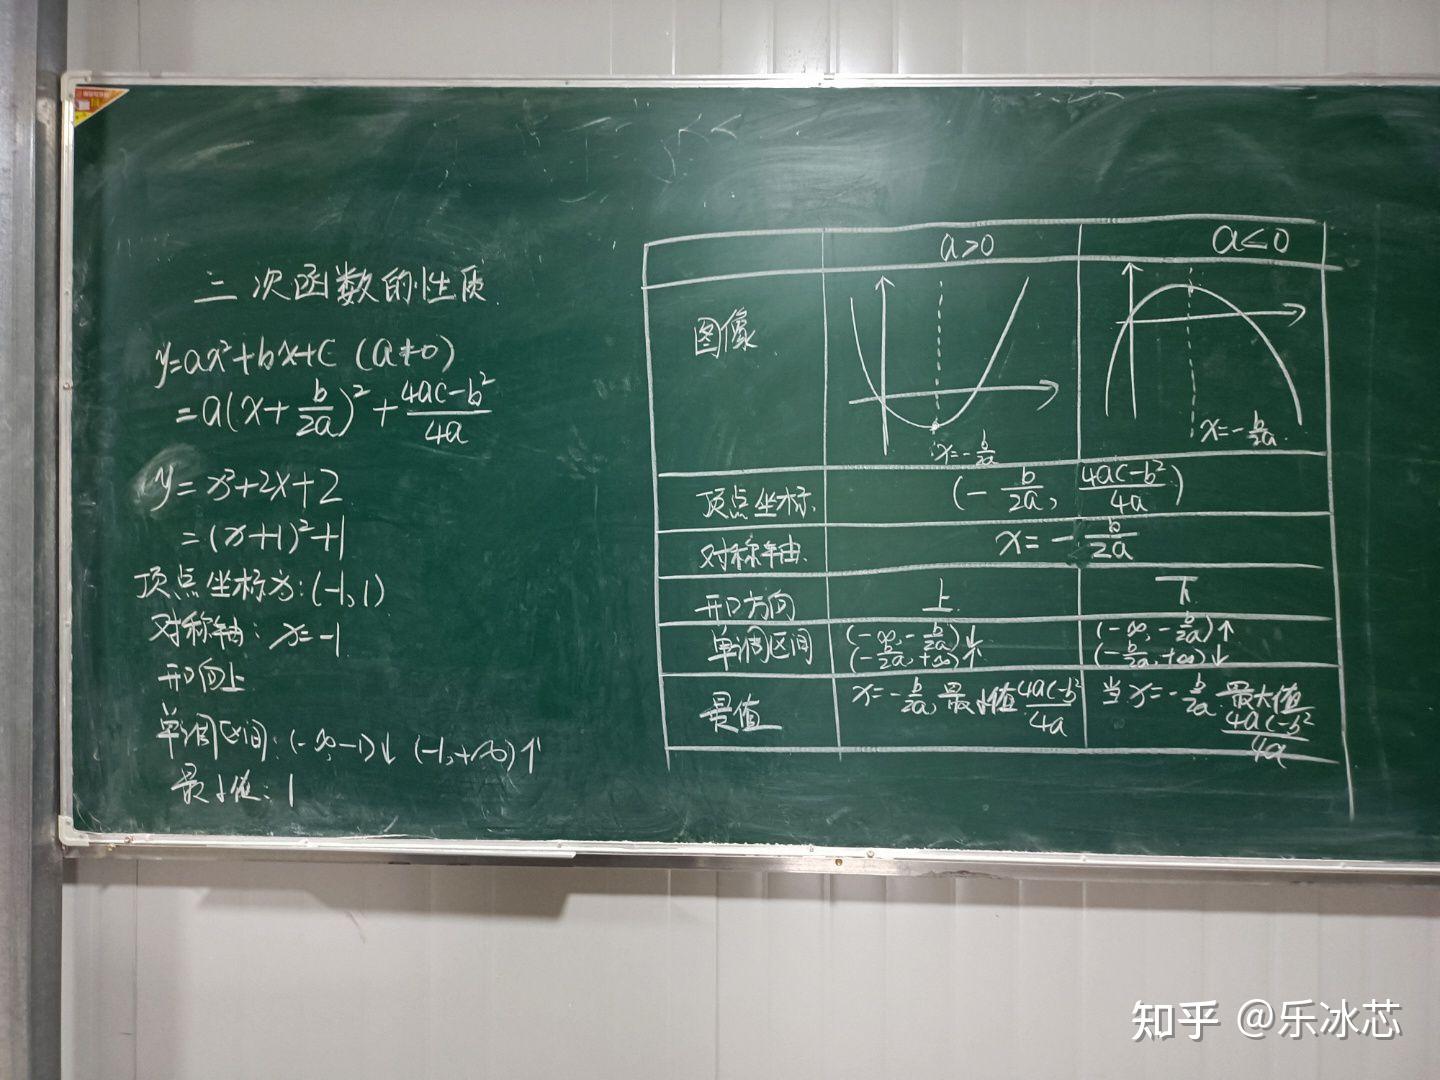 二次函数的性质
y=ax²+bx+c (a≠0)
=a(x+b/2a)²+(4ac-b²)/4a
y=x²+2x+2
=(x+1)²+1
顶点坐标为:(-1,1)
对称轴:x=-1
开口向上
单调区间:(-∞,-1)↓ (-1,+∞)↑
最小值:1
a>0 a<0
图像
x=-b/2a x=-b/2a
顶点坐标 (-b/2a, (4ac-b²)/4a)
对称轴 x=-b/2a
开口方向 上 下
单调区间 (-∞,-b/2a)↓ (-∞,-b/2a)↑
(-b/2a,+∞)↑ (-b/2a,+∞)↓
最值 x=-b/2a,最小值(4ac-b²)/4a 当x=-b/2a.最大值
(4ac-b²)/4a
知乎 @乐冰芯